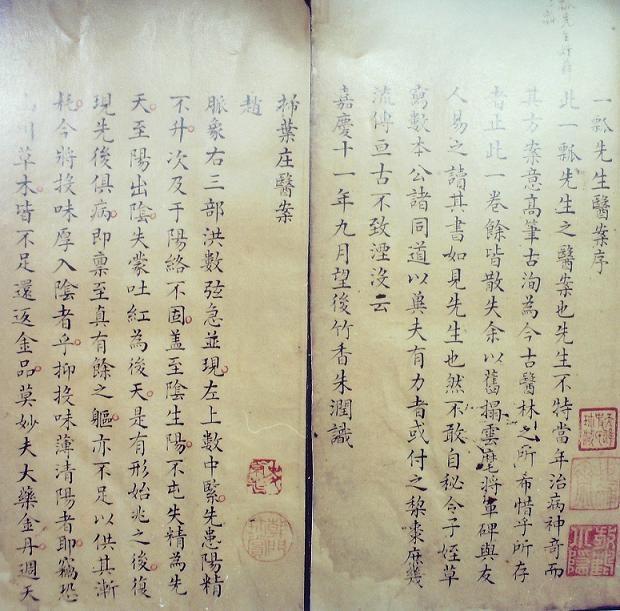 一瓢先生醫案序
此一瓢先生之醫案也先生不特當年治病神奇而
其方案意高筆古洵為今古醫林之所希惜乎所存
者止此一卷餘皆散失余以舊搨雲麾將軍碑與友
人易之讀其書如見先生也然不敢自秘令子姪草
寫數本公諸同道以冀夫有力者或付之棃棗庶幾
流傳亘古不致湮没云
嘉慶十一年九月望後竹香朱潤識
掃葉庄醫案
趙
脈象右三部洪數弦急並現左上數中緊先患陽精
不升次及于陽絡不固盖至陰生陽不屯失精為先
天至陽出陰失蒙吐紅為後天是有形始兆之後復
現先後俱病即禀至真有餘之軀亦不足以供其漸
耗今將投味厚入陰者乎抑投味薄清陽者耶竊恐
川草木皆不足還返金品莫妙夫大藥金丹週天